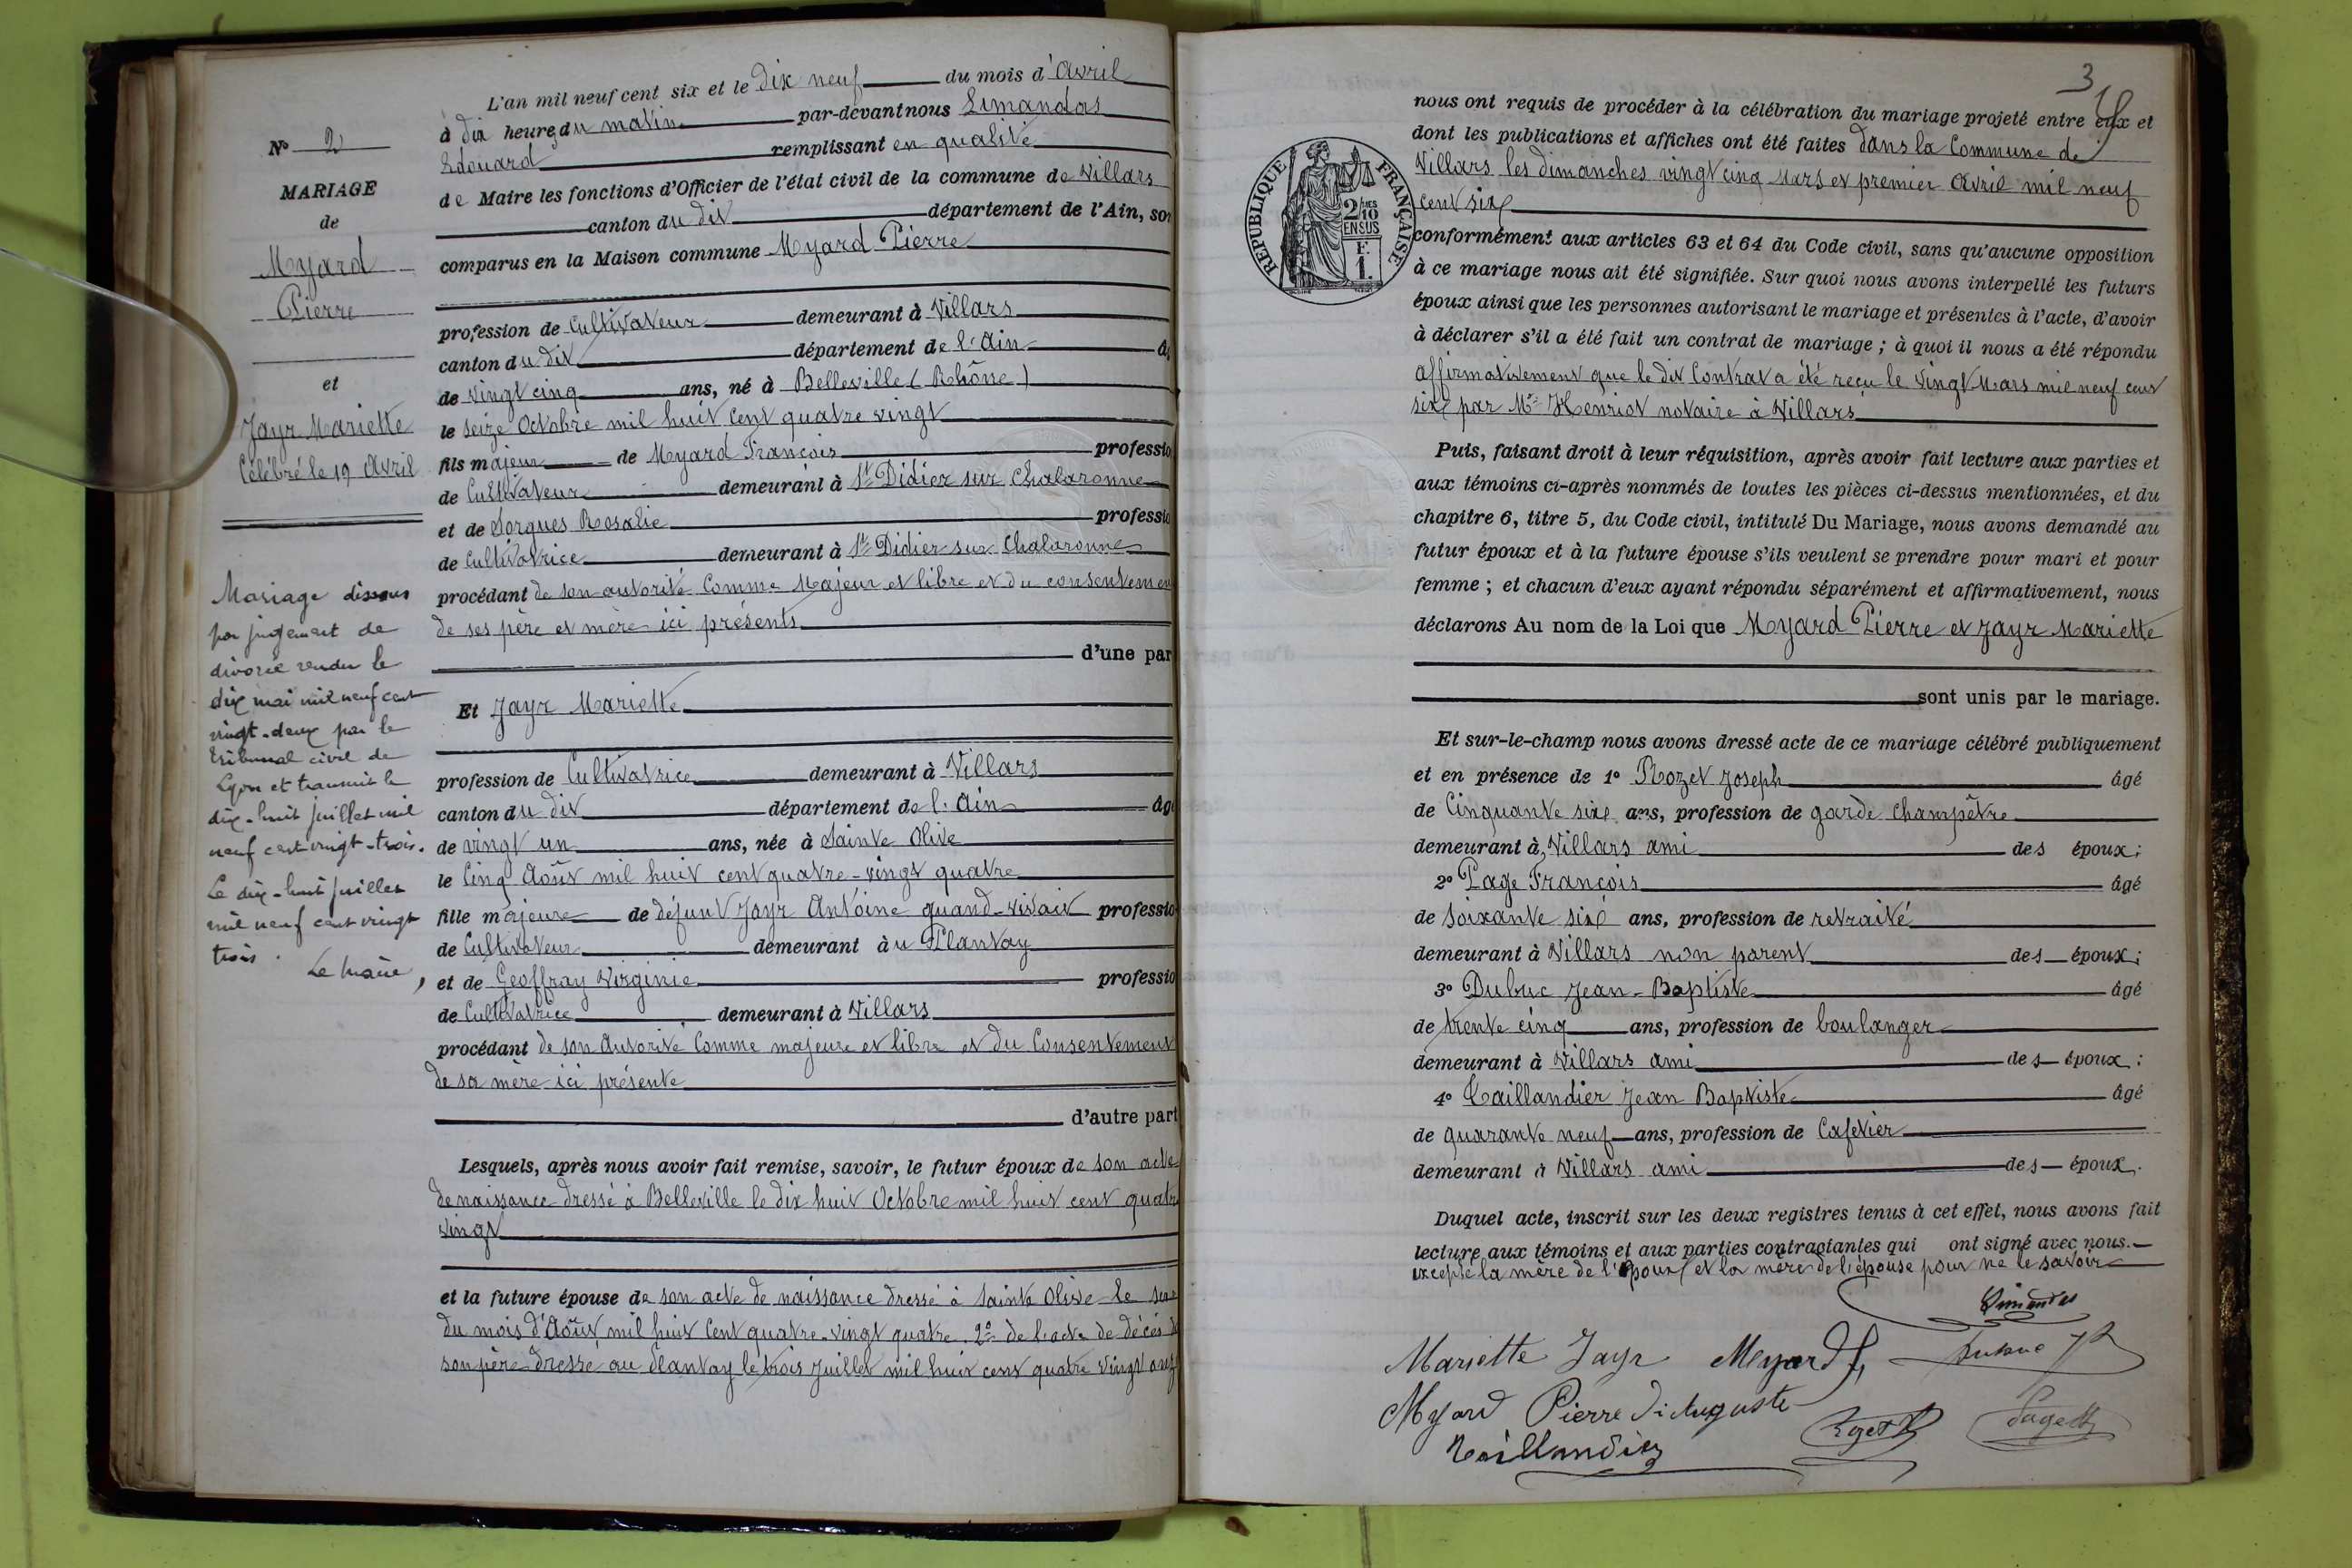 N° 2
MARIAGE
de
Myard
Pierre
et
Jayr Mariette
Célébré le 19 Avril
Mariage dissous
par jugement de
divorce rendu le
dix mai mil neuf cent
vingt-deux par le
tribunal civil de
Lyon et transcrit le
dix-huit juillet mil
neuf cent vingt-trois.
Le dix-huit juillet
mil neuf cent vingt
trois.
Le Maire,
L'an mil neuf cent six et le dix neuf du mois d'Avril
à dix heures du matin par-devant nous Limandas
Edouard remplissant en qualité
de Maire les fonctions d'Officier de l'état civil de la commune de Villars
canton du dit département de l'Ain, son
comparus en la Maison commune Myard Pierre
profession de Cultivateur demeurant à Villars
canton du dit département de l'Ain â
de vingt cinq ans, né à Belleville (Rhône)
le seize Octobre mil huit cent quatre vingt
fils majeur de Myard François professio
de Cultivateur demeurant à St Didier sur Chalaronne
et de Sorgues Rosalie professio
de Cultivatrice demeurant à St Didier sur Chalaronne
procédant de son autorité Comme Majeur et libre et du consentement
de ses père et mère ici présents
d'une par
Et Jayr Mariette
profession de Cultivatrice demeurant à Villars
canton du dit département de l'Ain âg
de vingt un ans, née à Sainte Olive
le Cinq Août mil huit cent quatre-vingt quatre
fille majeure de défunt Jayr Antoine quand-vivait professio
de Cultivateur demeurant au Plantay
et de Geoffray Virginie professio
de Cultivatrice demeurant à Villars
procédant de son Autorité Comme majeure et libre et du Consentement
de sa mère ici présente
d'autre part
Lesquels, après nous avoir fait remise, savoir, le futur époux de son acte
de naissance dressé à Belleville le dix huit Octobre mil huit cent quatre
vingt
et la future épouse de son acte de naissance dressé à Sainte Olive le
du mois d'Août mil huit Cent quatre-vingt quatre. 2° de l'acte de décès de
son père dressé au Plantay le trois Juillet mil huit cent quatre vingt onz
3
nous ont requis de procéder à la célébration du mariage projeté entre eux et
dont les publications et affiches ont été faites dans la Commune de
Villars les dimanches vingt cinq Mars et premier Avril mil neuf
cent six
REPUBLIQUE FRANÇAISE
2/10MES
EN SUS
F.
1.
conformément aux articles 63 et 64 du Code civil, sans qu'aucune opposition
à ce mariage nous ait été signifiée. Sur quoi nous avons interpellé les futurs
époux ainsi que les personnes autorisant le mariage et présentes à l'acte, d'avoir
à déclarer s'il a été fait un contrat de mariage ; à quoi il nous a été répondu
affirmativement que le dit Contrat a été reçu le vingt Mars mil neuf cent
six par Me Henriot notaire à Villars
Puis, faisant droit à leur réquisition, après avoir fait lecture aux parties et
aux témoins ci-après nommés de toutes les pièces ci-dessus mentionnées, et du
chapitre 6, titre 5, du Code civil, intitulé Du Mariage, nous avons demandé au
futur époux et à la future épouse s'ils veulent se prendre pour mari et pour
femme ; et chacun d'eux ayant répondu séparément et affirmativement, nous
déclarons Au nom de la Loi que Myard Pierre et Jayr Mariette
sont unis par le mariage.
Et sur-le-champ nous avons dressé acte de ce mariage célébré publiquement
et en présence de 1° Rozet Joseph âgé
de Cinquante six ans, profession de garde champêtre
demeurant à Villars ami des époux ;
2° Page François âgé
de soixante six ans, profession de retraité
demeurant à Villars non parent des époux ;
3° Dubuc Jean-Baptiste âgé
de trente cinq ans, profession de boulanger
demeurant à Villars ami des époux ;
4° Taillandier Jean Baptiste âgé
de quarante neuf ans, profession de Cafetier
demeurant à Villars ami des époux.
Duquel acte, inscrit sur les deux registres tenus à cet effet, nous avons fait
lecture aux témoins et aux parties contractantes qui ont signé avec nous.
excepté la mère de l'époux et la mère de l'épouse pour ne le savoir
Limandas
Mariette Jayr Myard f, Dubuc JB
Myard Pierre Auguste
Taillandier